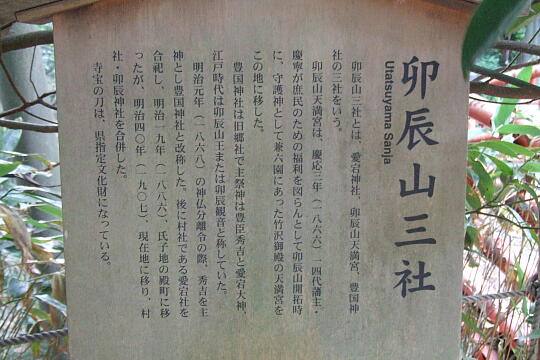 卯辰山三社
Utatsuyama Sanja
卯辰山三社とは、愛宕神社、卯辰山天満宮、豊国神
社の三社をいう。
卯辰山天満宮は、慶応三年(一八六六)一四代藩主・
慶寧が庶民のための福利を図らんとして卯辰山開拓時
に、守護神として兼六園にあった竹沢御殿の天満宮を
この地に移した。
豊国神社は旧郷社で主祭神は豊臣秀吉と愛宕大神、
江戸時代は卯辰山王または卯辰観音と称していた。
明治元年(一八六八)の神仏分離令の際、秀吉を主
神とし豊国神社と改称した。後に村社である愛宕社を
合祀し、明治一九年(一八八六)、氏子地の殿町に移
ったが、明治四〇年(一九〇七)、現在地に移り、村
社・卯辰神社を合併した。
寺宝の刀は、県指定文化財になっている。